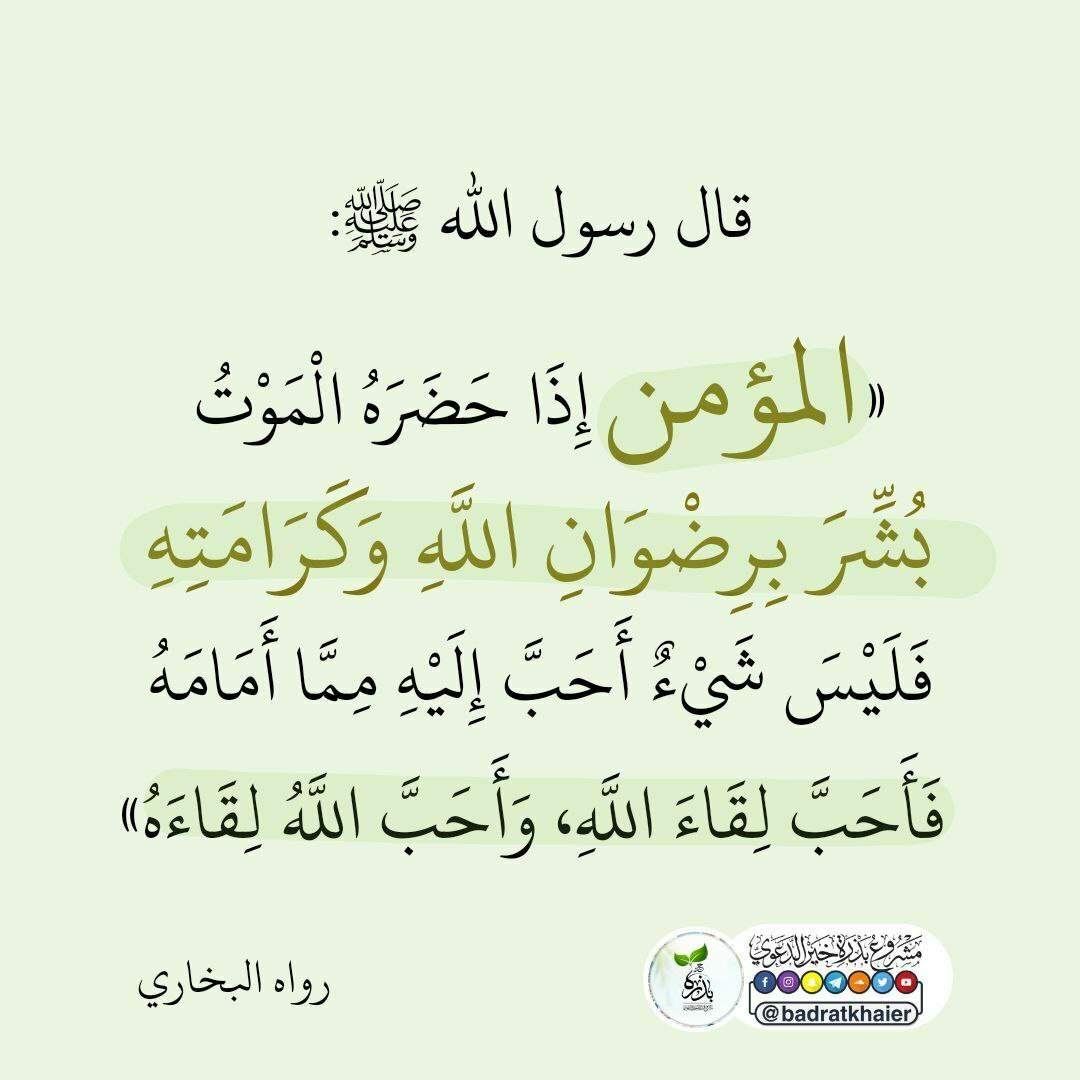 قال رسول الله ﷺ:
«المؤمن إِذَا حَضَرَهُ الْمَوْتُ
بُشِّرَ بِرِضْوَانِ اللَّهِ وَكَرَامَتِهِ
فَلَيْسَ شَيْءٌ أَحَبَّ إِلَيْهِ مِمَّا أَمَامَهُ
فَأَحَبَّ لِقَاءَ اللَّهِ، وَأَحَبَّ اللَّهُ لِقَاءَهُ»
رواه البخاري
مَشْرُوعُ بَذْرَة خَيْر الدَّعَوِي
@badratkhaier
بذرة